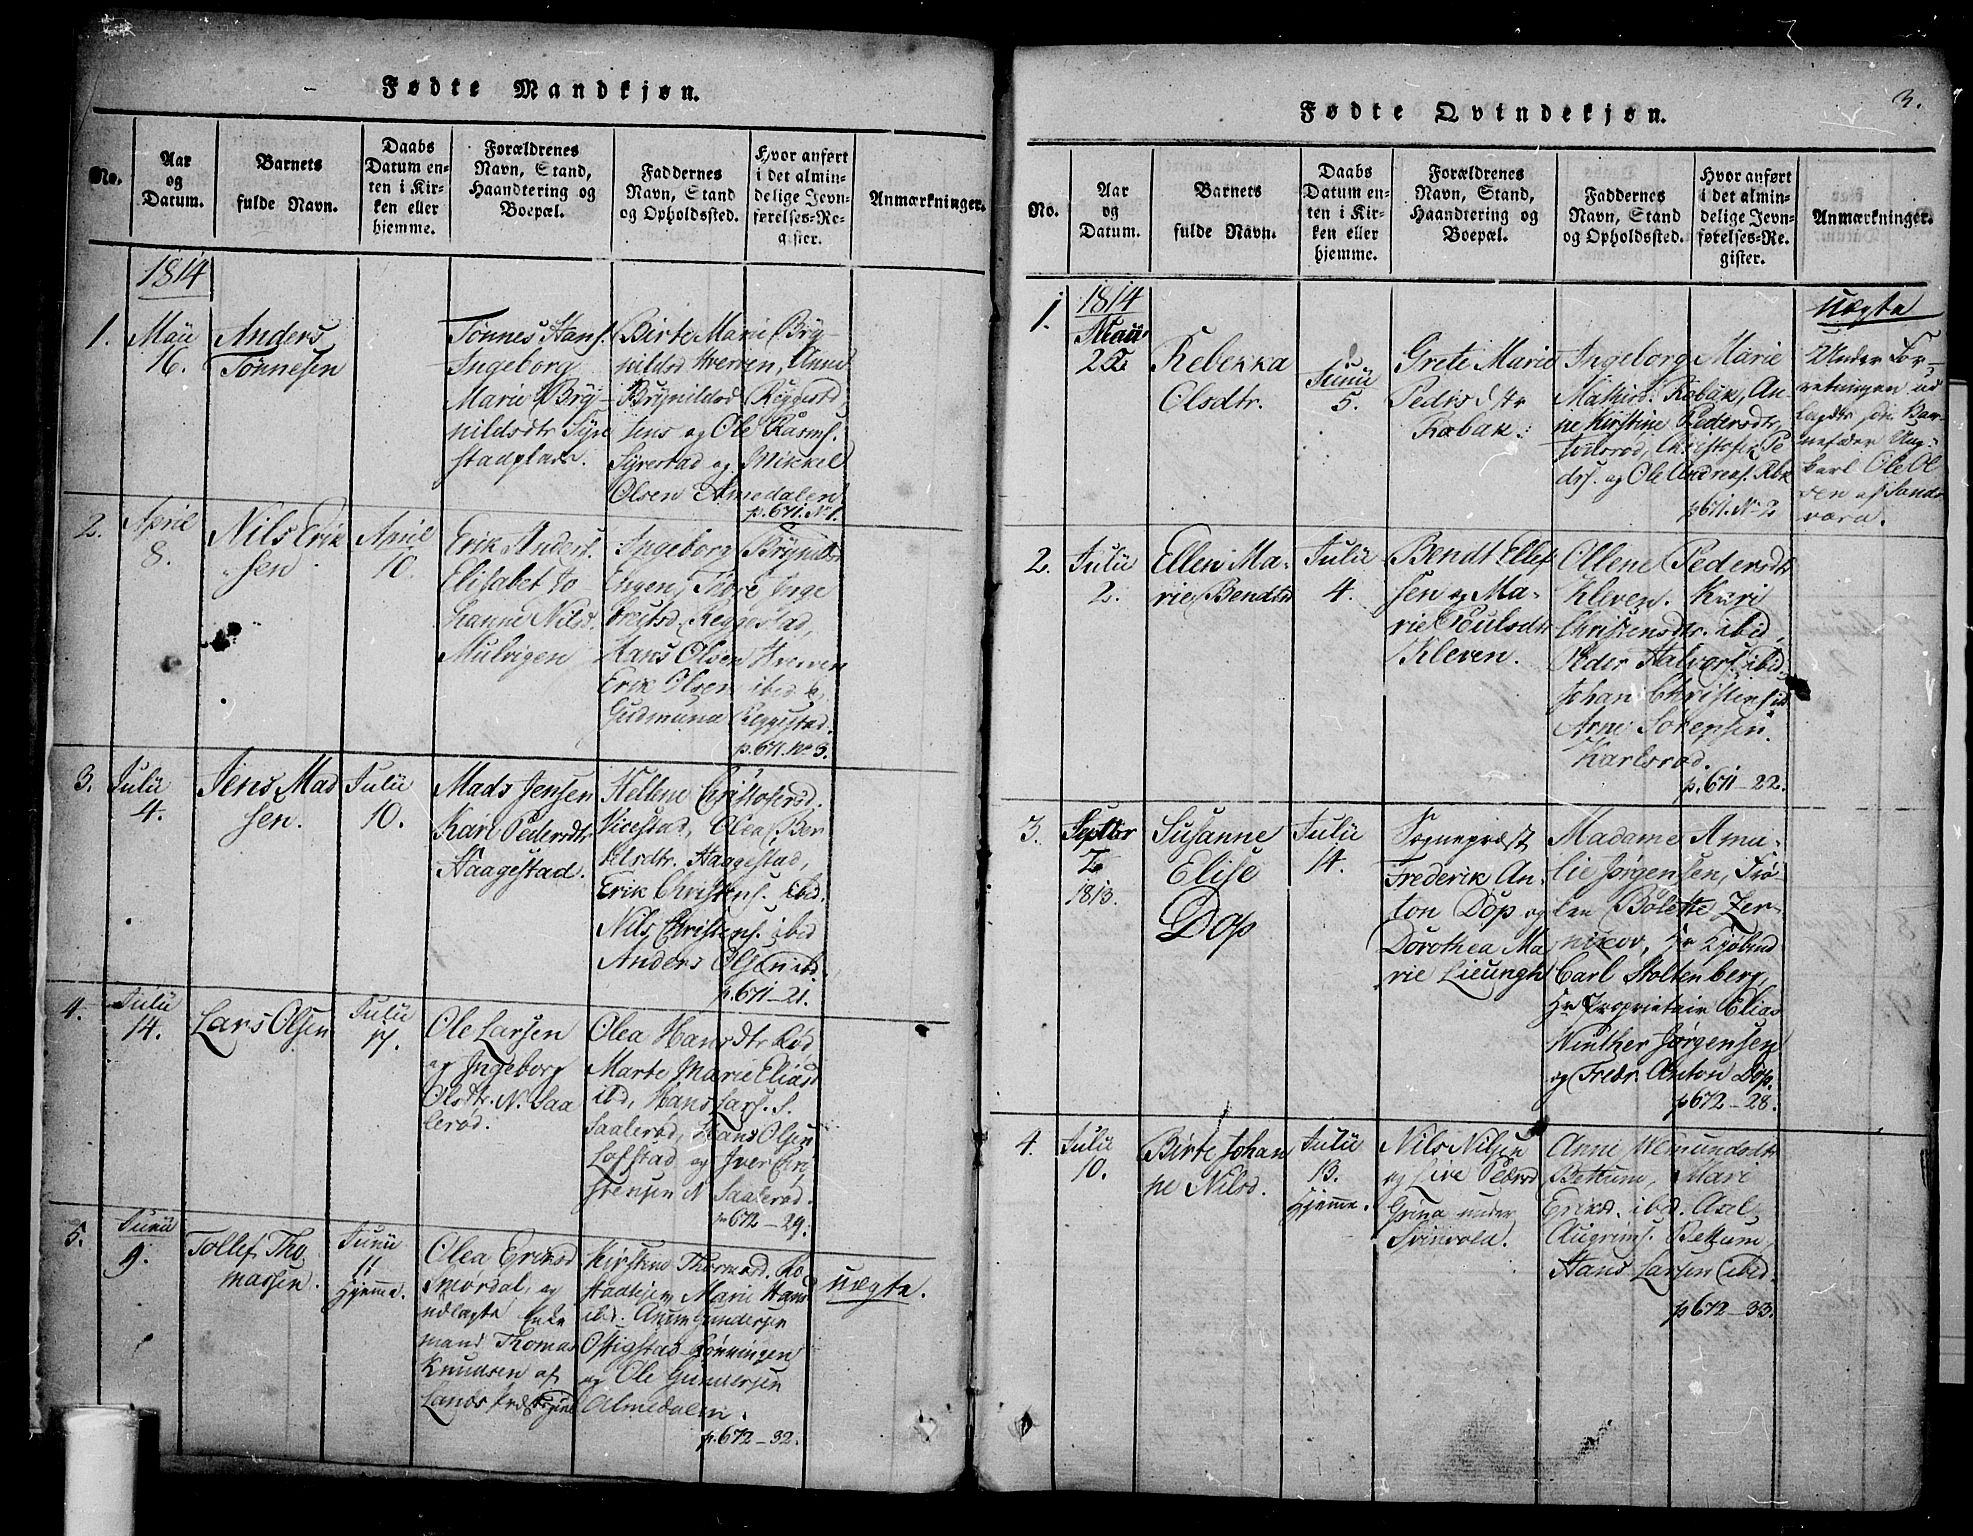 Fødte Mandkjøn.
No.
Aar
og
Datum.
Barnets
fulde Navn.
Daabs
Datum en-
ten i Kir-
ken eller
hjemme.
Forældrenes
Navn, Stand,
Haandtering og
Boepæl.
Faddernes
Navn, Stand
og Opholdssted.
Hvor anført
i det almin-
delige Jevn-
førelses-Re-
gister.
Anmærkninger.
1814
1.
Maii
16.
Anders
Tønnesen
Tønnes Hans.
Ingeborg
Marie Bry-
nildsdtr Syre
stadplads.
Birte Marie Bry-
nildsd Hverven, Anne
Brynildsd Reggestad,
Jens og Ole Rasms.
Syrestad og Mikkel
Olsen Amedalen.
p. 671. N 1.
2.
April
8.
Nils Erik
sen
April
10.
Erik Anders.
Elisabet Jo
hanne Nilsd.
Mulvigen
Ingeborg Brynilds
Engen, Thore Inge
bretsd Reggestad,
Hans Olsen Hverven
Erik Olsen ibid &
Gudmund Reggestad.
p. 671. No 3.
3.
Julii
4.
Jens Mad
sen.
Julii
10.
Mads Jensen
Kari Pedersdtr
Haagestad.
Hellene Christofersd.
Vicestad, Olea Ber
telsdtr. Haagestad,
Erik Christens. ibid.
Nils Christens. ibid
Anders Olsen ibd.
p. 671-21.
4.
Julii
14.
Lars Olsen
Julii
17.
Ole Larsen
og Ingeborg
Olsdtr. N. Saa
lerød.
Olea Hansdtr Rød
Marte Marie Eliasd
ibd, Hans Lars. S.
Saalerød, Hans Olsen
Lofstad og Iver Chri,
stensen N Saalerød.
p 672-29.
5.
Junii
9.
Tollef Tho
massen.
Junii
11
Hjemme.
Olea Eriksd
Smørdal, og
udlagte Enke
mand Thomas
Knudsen af
Kirstine Thormsd. Rød
Marie Hans
ibd. Gundersen
Østigstad Rønningen
og Ole Gundersen
Almedalen.
p. 672-32.
uægte.
3.
Fødte Qvindekjøn.
No.
Aar
og
Datum.
Barnets
fulde Navn.
Daabs
Datum en-
ten i Kir-
ken eller
hjemme.
Forældrenes
Navn, Stand,
Haandtering og
Boepæl.
Faddernes
Navn, Stand
og Opholdssted.
Hvor anført
i det almin-
delige Jevn-
førelses-Re-
gister.
Anmærkninger.
1814
1.
Maii
22
Rebekka
Olsdtr.
Junii
5.
Grete Marie
Pedersdtr
Robak.
Ingeborg Marie
Mathisd. Robak, An-
ne Kirstine Pedersdtr,
Christofer Pe
ders. og Ole Andreas. Rbk
p 671. No 2
uægte
Under For-
retningen ud
lagdes som Bar-
nefader Ung-
karl Ole Ol
sen af Sande
2.
Julii
2.
Ellen Ma-
rie Bendtsd
Julii
4.
Bendt Ellef
sen og Ma-
rie Poulsdtr
Kleven.
Ollene Pedersdtr
Kleven. Kari
Christensdtr. ibid,
Peder Halvors. ibid.
Johan Christens ibd
Arne Sørensen.
Karlsrød.
p. 671-22.
3.
Septbr
7
1813.
Susanne
Elise
Dop
Julii
14.
Sognepræst
Frederik An-
ton Dop og
Dorothea Ma
rie Lieungh
Madame Ama-
lie Jørgensen, Frø-
ken Bolette Zer-
nikov, Hr Kjøbmd
Carl Stoltenberg,
Hr Proprietair Elias
Winther Jørgensen
og Fredr. Anton Dop.
p 672-28.
4.
Julii
10.
Birte Johan
ne Nilsd.
Julii
13.
Hjemme.
Nils Nilsen
og Live Pedersd
Grina under
Svinvold.
Anne Aemundsdtr
Bettum, Mari
Eriksd. ibid. Axel
Augrims. Bettum,
Hans Larsen ibid.
p 672-33.